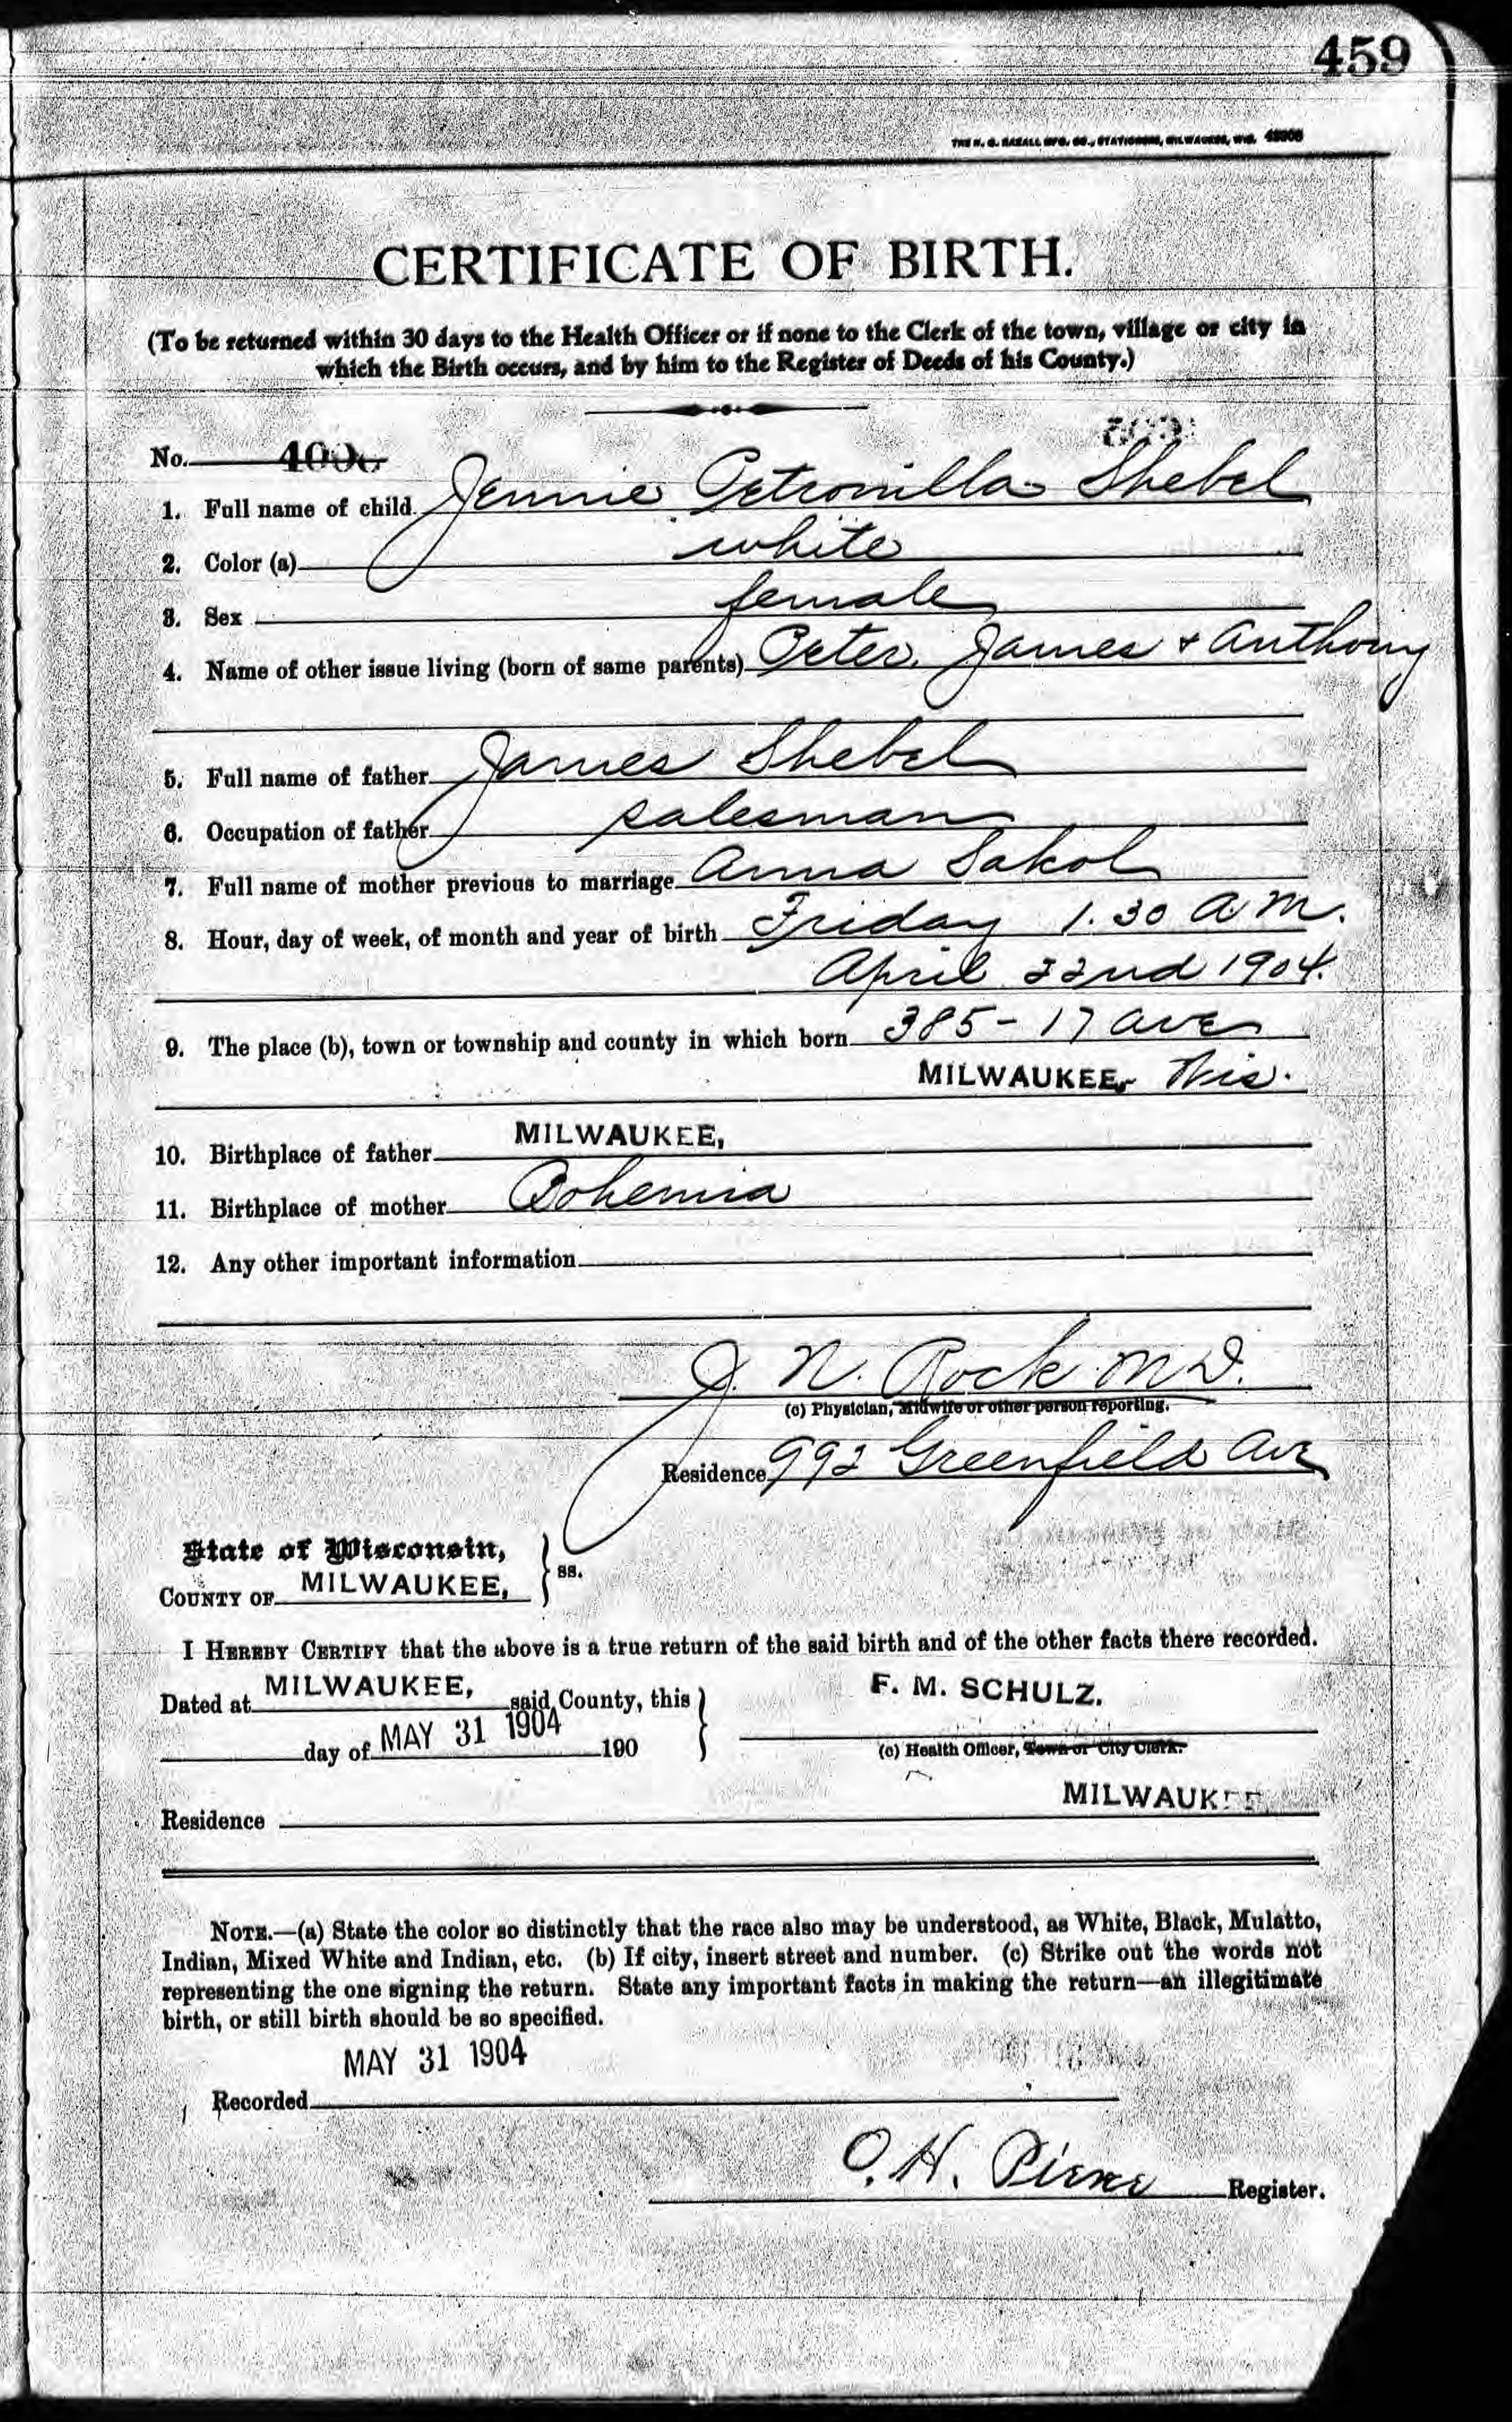 459
THE H. G. RAZALL MFG. CO., STATIONERS, MILWAUKEE, WIS.
CERTIFICATE OF BIRTH.
(To be returned within 30 days to the Health Officer or if none to the Clerk of the town, village or city in
which the Birth occurs, and by him to the Register of Deeds of his County.)
No.
1. Full name of child Jennie Petronilla Shebel
2. Color (a) white
3. Sex female
4. Name of other issue living (born of same parents) Peter, James + Anthony
5. Full name of father James Shebel
6. Occupation of father salesman
7. Full name of mother previous to marriage Anna Sakol
8. Hour, day of week, of month and year of birth Friday 1.30 A M.
April 22nd 1904.
9. The place (b), town or township and county in which born 385 - 17 Ave
MILWAUKEE, Wis.
10. Birthplace of father MILWAUKEE,
11. Birthplace of mother Bohemia
12. Any other important information
J. N. Rock M D.
(c) Physician, Midwife or other person reporting.
Residence 992 Greenfield Ave
State of Wisconsin,
COUNTY OF MILWAUKEE, } ss.
I HEREBY CERTIFY that the above is a true return of the said birth and of the other facts there recorded.
Dated at MILWAUKEE, said County, this } F. M. SCHULZ.
day of MAY 31 1904 190 (c) Health Officer, Town or City Clerk.
MILWAUKEE
Residence
NOTE.—(a) State the color so distinctly that the race also may be understood, as White, Black, Mulatto,
Indian, Mixed White and Indian, etc. (b) If city, insert street and number. (c) Strike out the words not
representing the one signing the return. State any important facts in making the return—an illegitimate
birth, or still birth should be so specified.
MAY 31 1904
Recorded
O. H. Register.